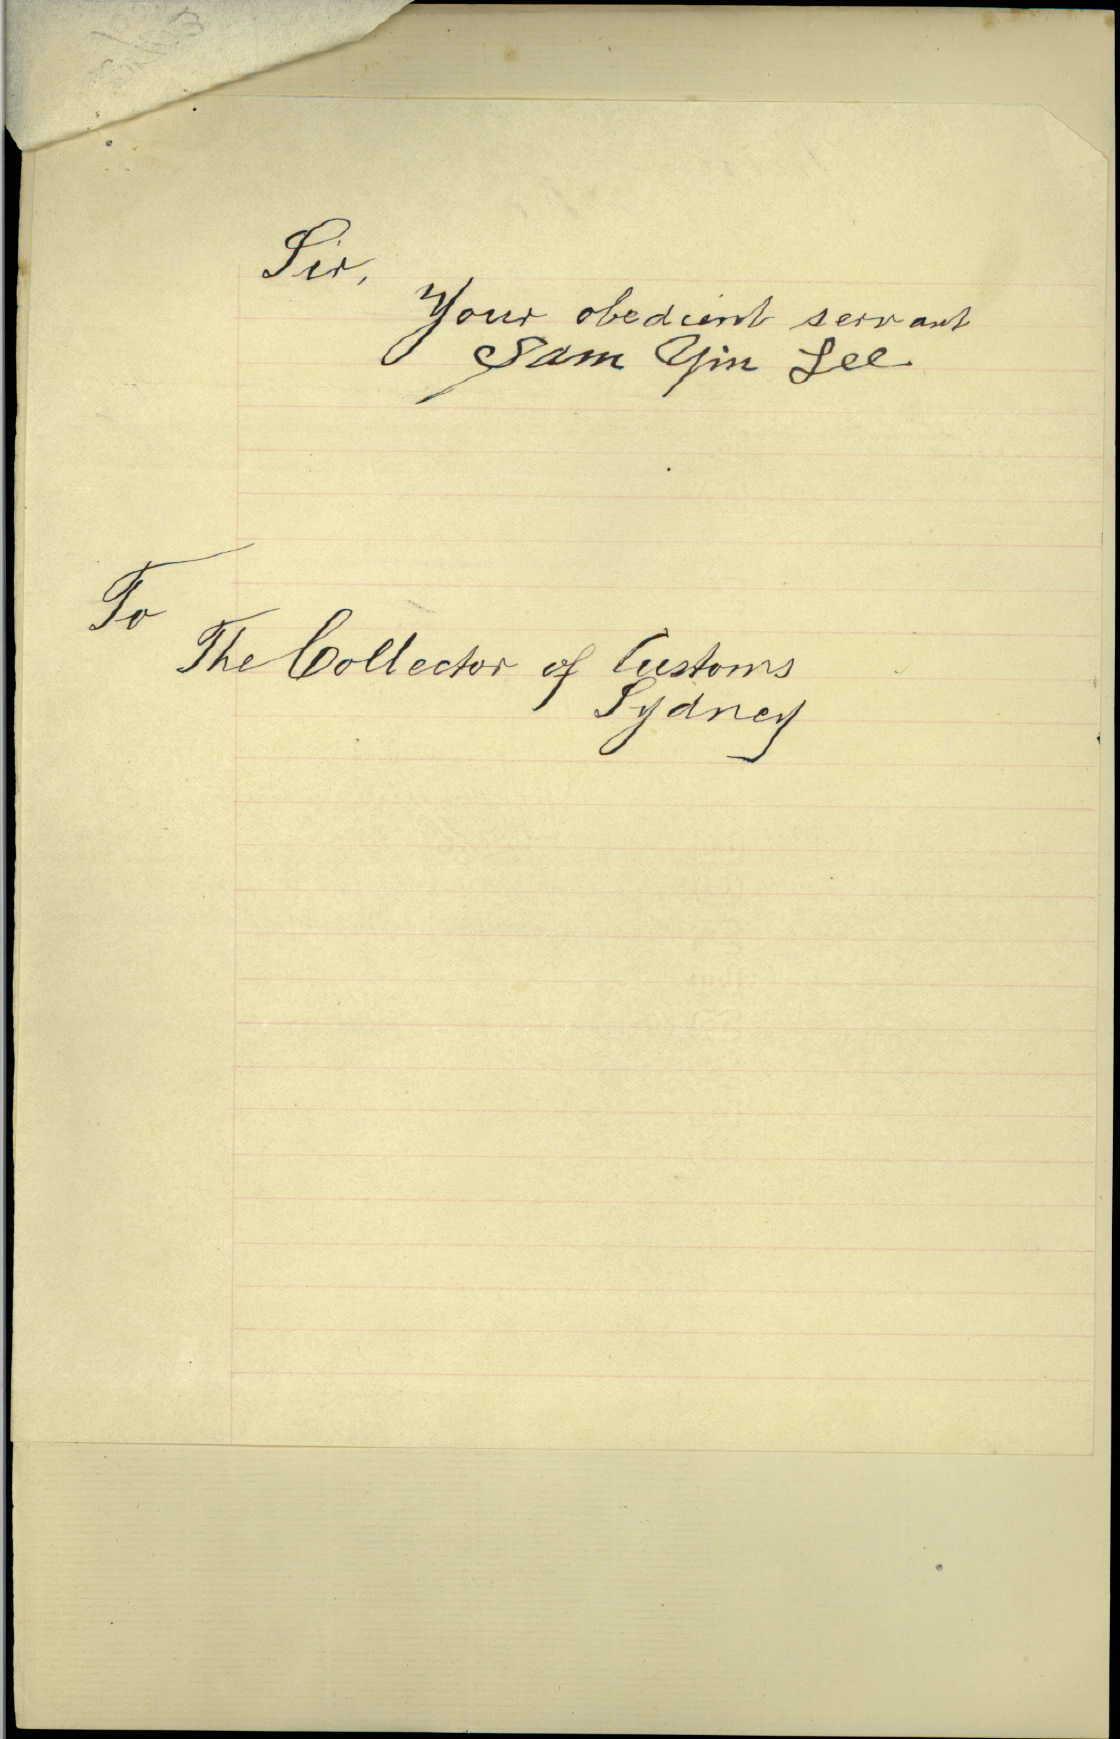 Sir,
Your obedient servant
Sam Yin Lee
To
The Collector of Customs
Sydney